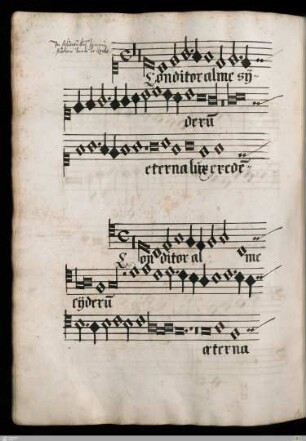 Conditor alme sy-
derū
eterna lux credē
Conditor al me
syderū
æterna